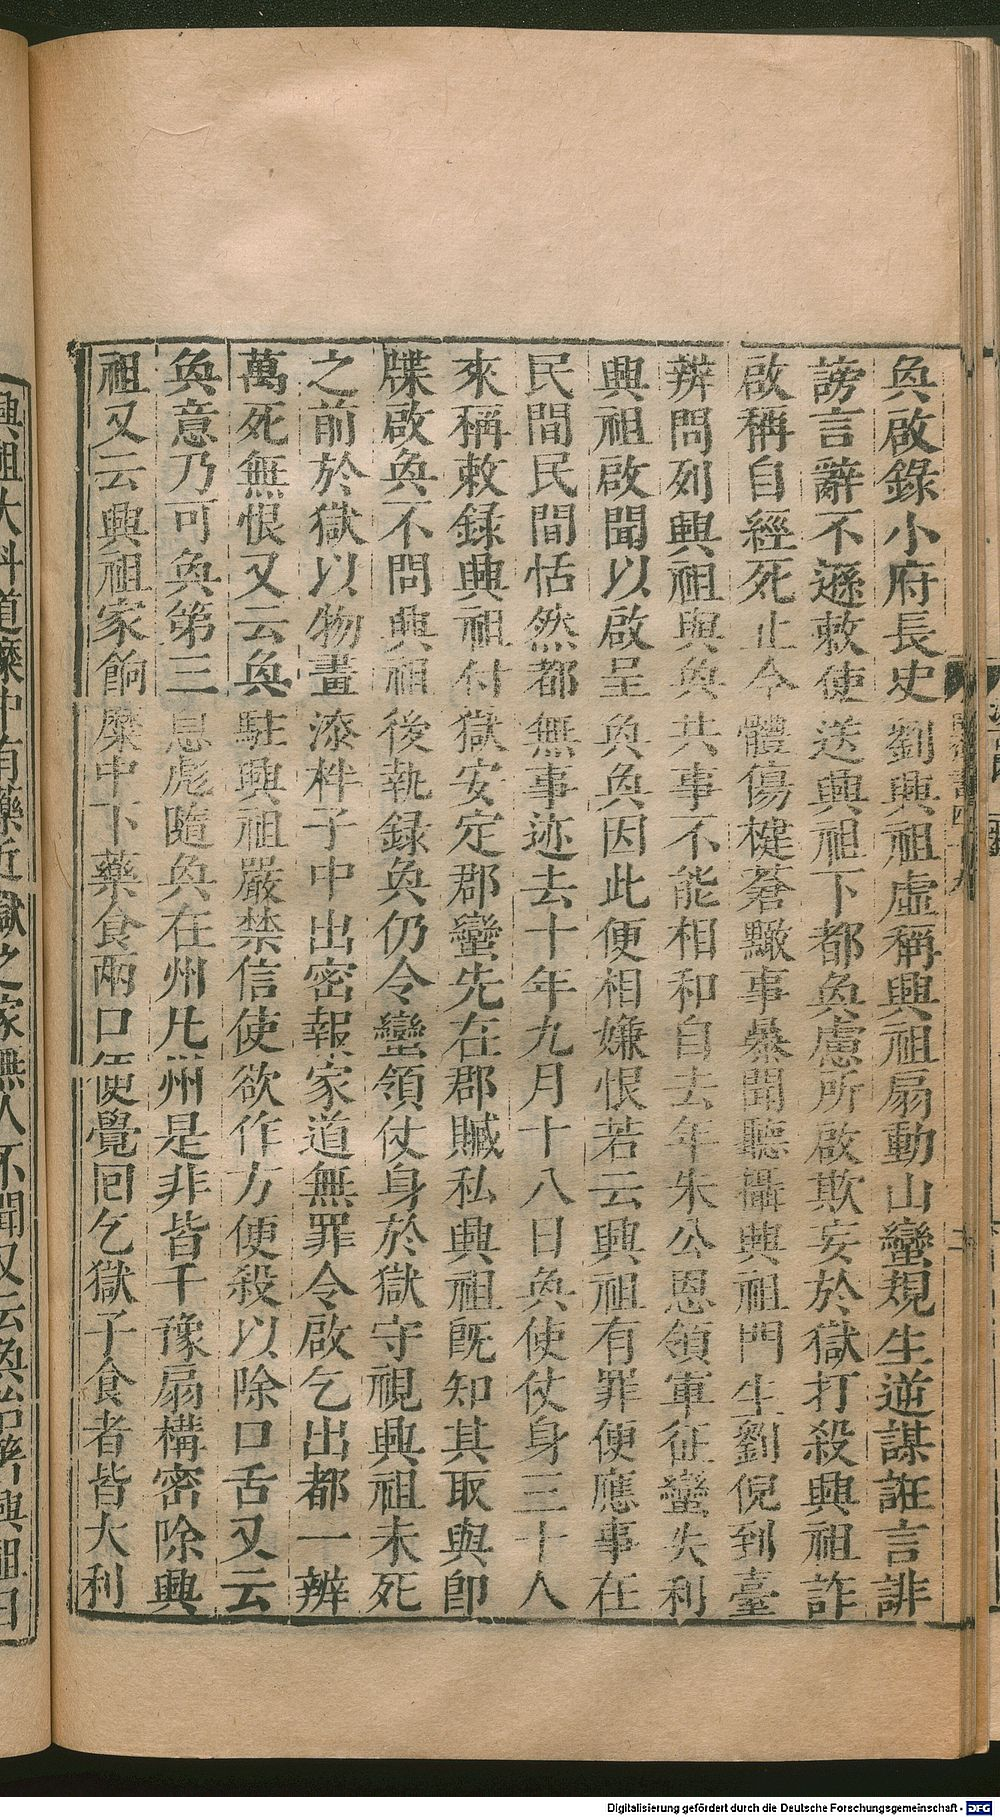 奐啟錄小府長史劉興祖虛稱興祖扇動山蠻規生逆謀誑言誹
謗言辭不遜敕使送興祖下都奐慮所啟欺妄於獄打殺興祖詐
啟稱自經死止今體傷楗蒼黶事暴聞聽攝興祖門生劉倪到臺
辨問列興祖與奐共事不能相和自去年朱公恩領軍征蠻失利
興祖啟聞以啟呈奐奐因此便相嫌恨若云興祖有罪便應事在
民間民間恬然都無事迹去十年九月十八日奐使仗身三十人
來稱敕録興祖付獄安定郡蠻先在郡贓私興祖旣知其取與卽
牒啟奐不問興祖後執録奐仍令蠻領仗身於獄守視興祖未死
之前於獄以物畫漆柈子中出密報家道無罪令啟乞出都一辨
萬死無恨又云奐駐興祖嚴禁信使欲作方便殺以除口舌又云
奐意乃可奐第三息彪隨奐在州凡州是非皆干豫扇構密除興
祖又云興祖家餉糜中下藥食兩口便覺回乞獄子食者皆大利
興祖大叫道糜中有藥近獄之家無人不聞又云奐治著興祖日
Digitalisierung gefördert durch die Deutsche Forschungsgemeinschaft - DFG